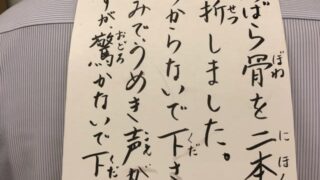 ばら骨を二本
ぼね にほ
折しました。
せつ
つからないで下さ
くだ
みでうめき声が
こえ
すが、驚かないで下
おどろ くだ